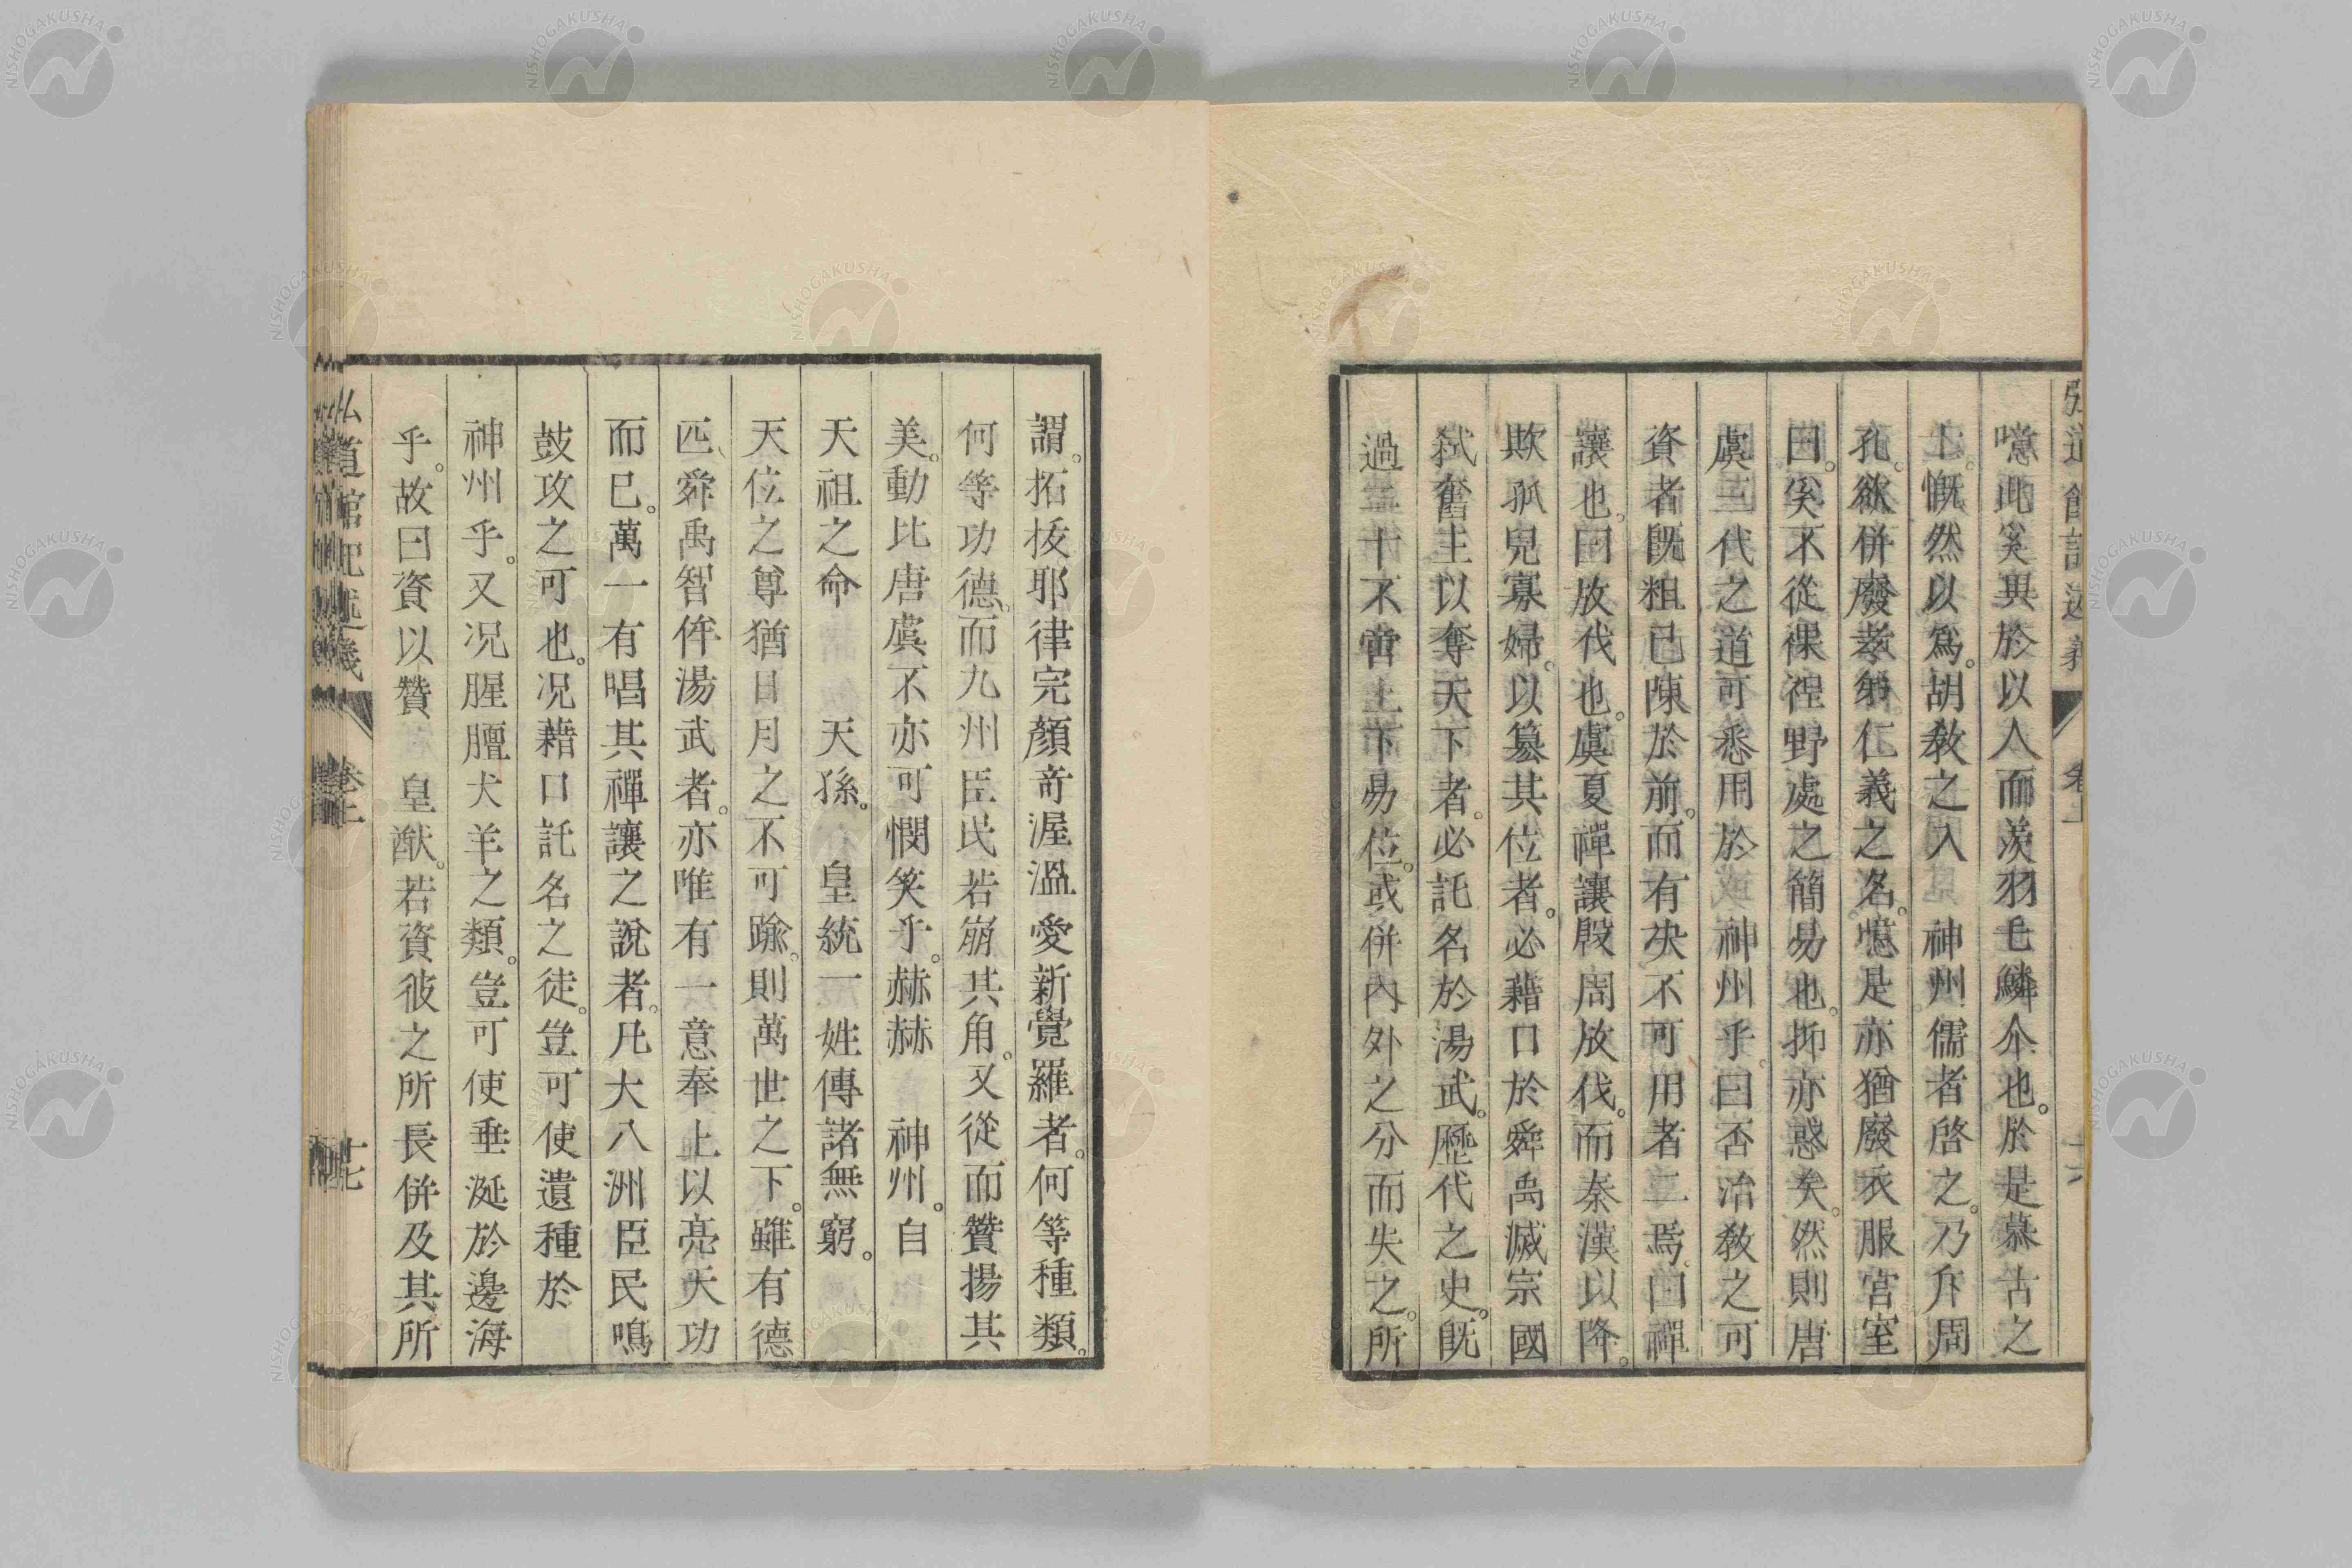 弘道館記述義 卷上 十六
噫此奚異於以人而羨羽毛鱗介也。於是慕古之
士。慨然以爲。胡敎之入 神州。儒者啓之。乃斥周
孔。欲併廢孝弟仁義之名。噫是亦猶廢衣服宮室
曰。奚不從裸裎野處之簡易也。抑亦惑矣。然則唐
虞三代之道可悉用於 神州乎。曰否治敎之可
資者既粗已陳於前。而有决不可用者二焉。曰禪
讓也。曰放伐也。虞夏禪讓殷周放伐。而秦漢以降。
欺孤兒寡婦。以簒其位者。必藉口於舜禹滅宗國
弑舊主以奪天下者。必託名於湯武。歷代之史。既
過二十不啻上下易位。或併內外之分而失之。所
謂。拓拔耶律完顏奇渥溫愛新覺羅者。何等種類。
何等功德。而九州臣民若崩其角。又從而贊揚其
美。動比唐虞不亦可憫笑乎。赫赫 神州。自
天祖之命 天孫。 皇統一姓傳諸無窮。
天位之尊猶日月之不可踰。則萬世之下。雖有德
匹舜禹智侔湯武者。亦唯有一意奉上以亮天功
而已。萬一有唱其禪讓之說者。凡大八洲臣民鳴
鼓攻之可也。况藉口託名之徒。豈可使遺種於
神州乎。又况腥膻犬羊之類。豈可使垂涎於邊海
乎。故曰資以贊 皇猷。若資彼之所長併及其所
弘道館記述義 卷上 十七
NISHOGAKUSHA